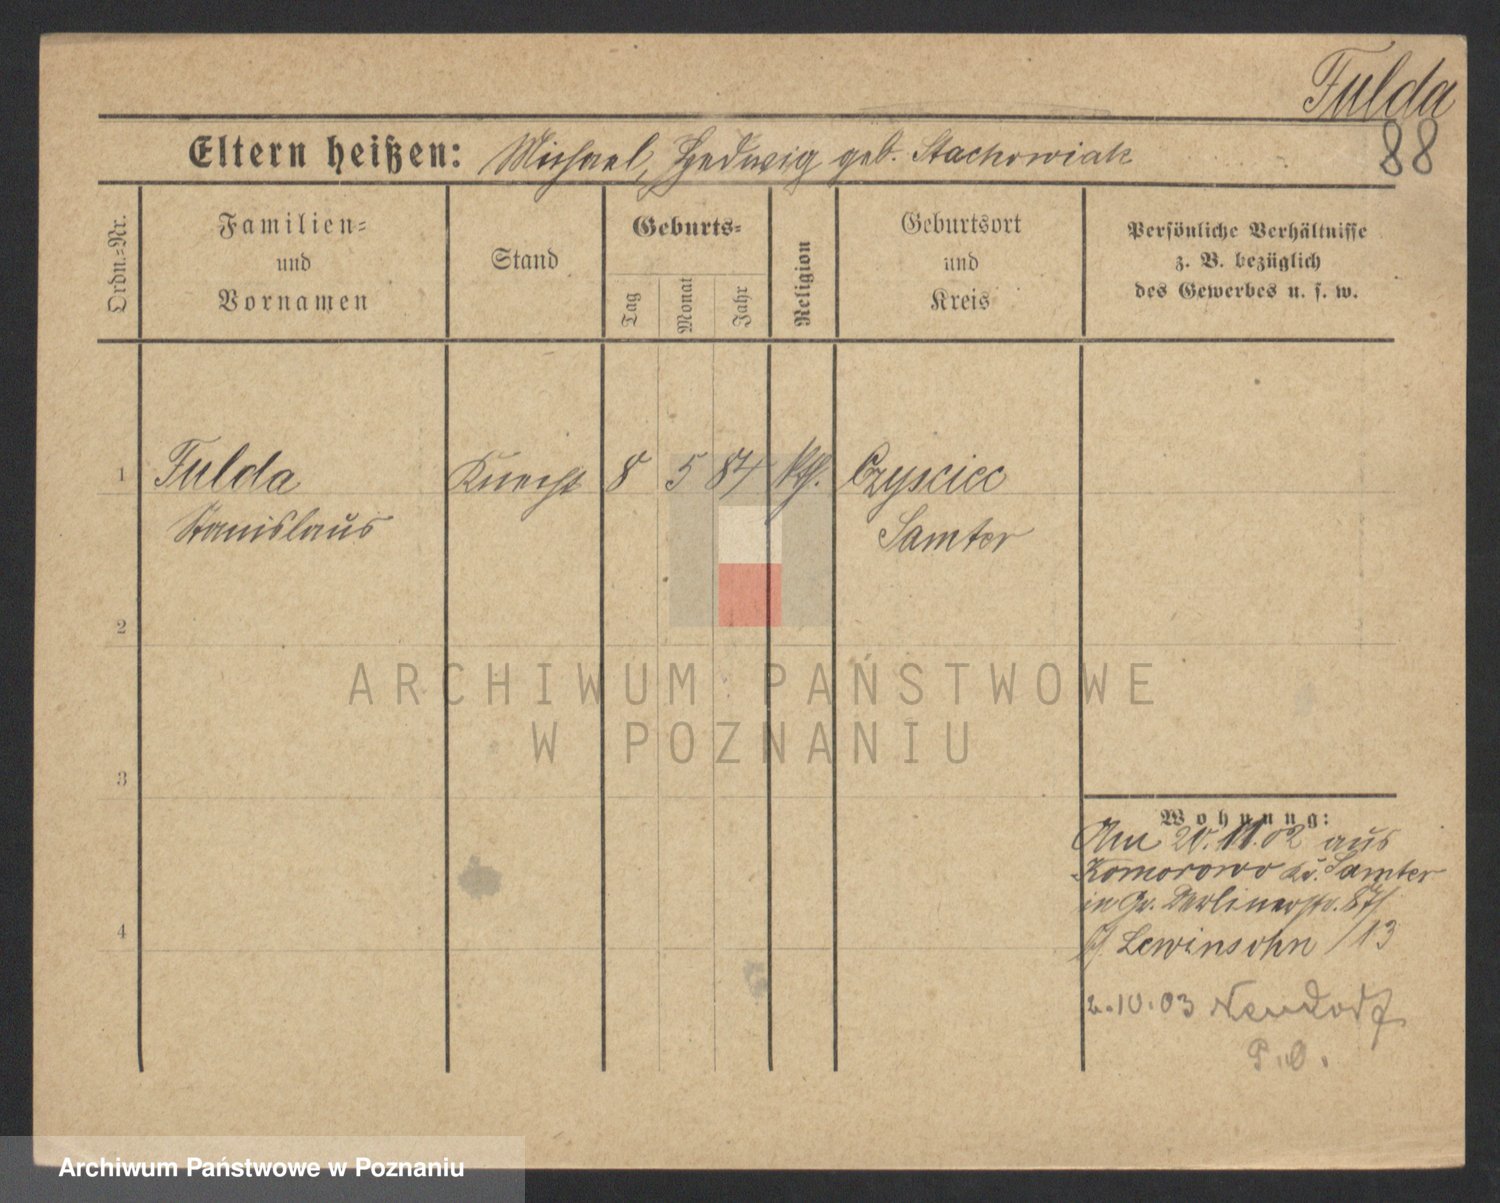 Fulda
88
Eltern heißen: Michael, Hedwig geb. Stachowiak
Ordn.=Nr.
Familien=
und
Vornamen
Stand
Geburts=
Tag
Monat
Jahr
Religion
Geburtsort
und
Kreis
Persönliche Verhältnisse
z. B. bezüglich
des Gewerbes u. s. w.
1 Fulda Knecht 8 5 84 kth. Czyscicc
Stanislaus Samter
2
3
4
ARCHIWUM PAŃSTWOWE
W POZNANIU
Wohnung:
Am 20.11.02 aus
Komorowo Kr. Samter
in Gr. Berlinerstr. 87/
b/ Lewinsohn /13
2.10.03 Neudorf
P.O.
Archiwum Państwowe w Poznaniu